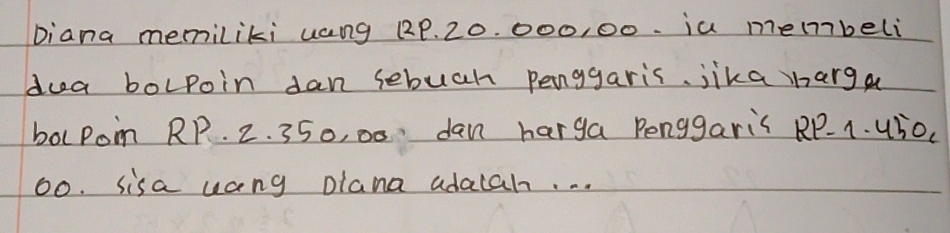 Diana memiliki uang RP.20.000,00. ia membeli
dua bolpoin dan sebuah Penggaris. jika harga
bolpoin RP.2.350,00 dan harga Penggaris RP.1.450,
00. sisa uang Diana adalah ...